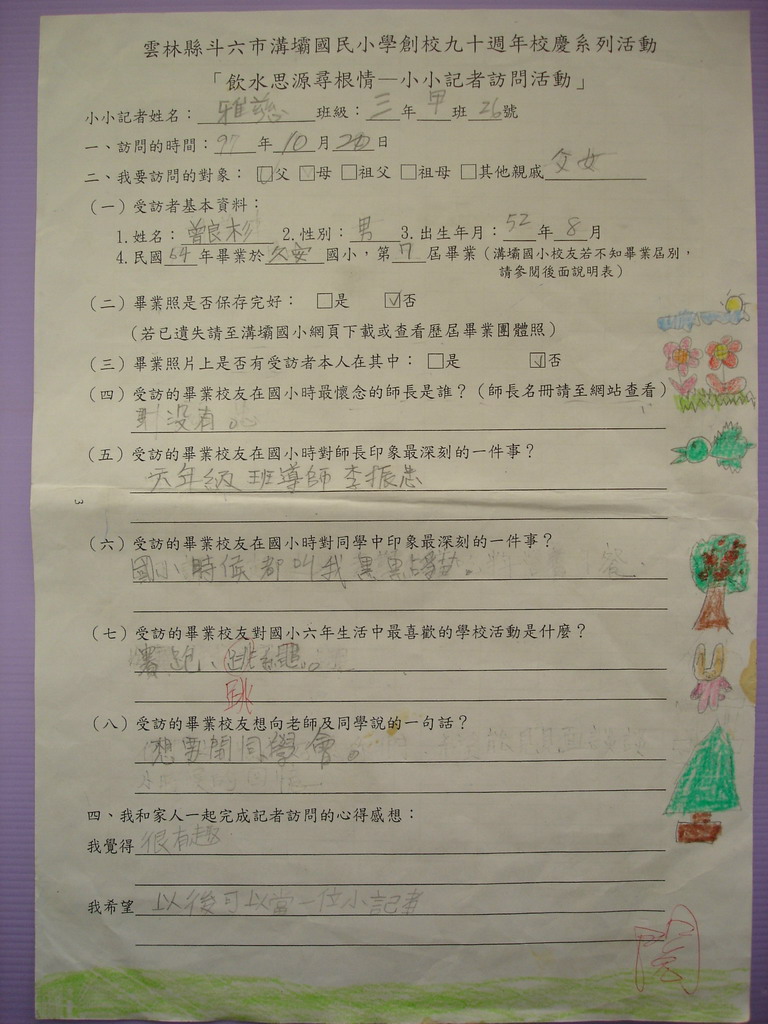 雲林縣斗六市溝壩國民小學創校九十週年校慶系列活動
「飲水思源尋根情—小小記者訪問活動」
小小記者姓名：雅慈 班級：三年甲班26號
一、訪問的時間：97年10月20日
二、我要訪問的對象：☑父 □母 □祖父 □祖母 □其他親戚父女
（一）受訪者基本資料：
1.姓名：曾良杉 2.性別：男 3.出生年月：52年8月
4.民國64年畢業於久安國小，第7屆畢業（溝壩國小校友若不知畢業屆別，
請參閱後面說明表）
（二）畢業照是否保存完好：□是 ☑否
（若已遺失請至溝壩國小網頁下載或查看歷屆畢業團體照）
（三）畢業照片上是否有受訪者本人在其中：□是 ☑否
（四）受訪的畢業校友在國小時最懷念的師長是誰？（師長名冊請至網站查看）
沒有。
（五）受訪的畢業校友在國小時對師長印象最深刻的一件事？
六年級班導師李振忠
3
（六）受訪的畢業校友在國小時對同學中印象最深刻的一件事？
國小時候都叫我黑黑貓。
（七）受訪的畢業校友對國小六年生活中最喜歡的學校活動是什麼？
賽跑、跳繩。
跳
（八）受訪的畢業校友想向老師及同學說的一句話？
想要開同學會。
四、我和家人一起完成記者訪問的心得感想：
我覺得很有趣
我希望以後可以當一位小記者
閱